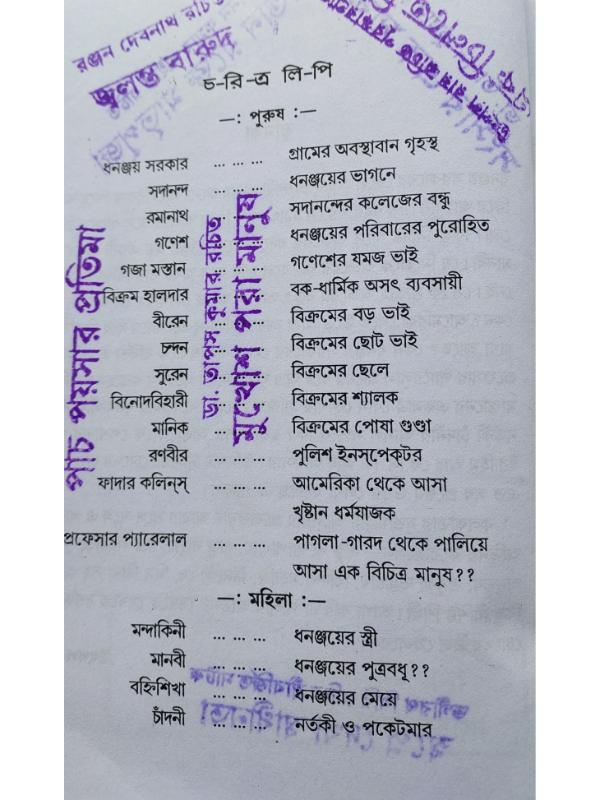 রঞ্জন দেবনাথ রচিত
জ্বলন্ত বারুদ
চ-রি-ত্র লি-পি
—: পুরুষ :—
ধনঞ্জয় সরকার ... ... ... গ্রামের অবস্থাবান গৃহস্থ
সদানন্দ ... ... ... ধনঞ্জয়ের ভাগনে
রমানাথ ... ... ... সদানন্দের কলেজের বন্ধু
গণেশ ... ... ... ধনঞ্জয়ের পরিবারের পুরোহিত
গজা মস্তান ... ... ... গণেশের যমজ ভাই
বিক্রম হালদার ... ... ... বক-ধার্মিক অসৎ ব্যবসায়ী
বীরেন ... ... ... বিক্রমের বড় ভাই
চন্দন ... ... ... বিক্রমের ছোট ভাই
সুরেন ... ... ... বিক্রমের ছেলে
বিনোদবিহারী ... ... ... বিক্রমের শ্যালক
মানিক ... ... ... বিক্রমের পোষা গুণ্ডা
রণবীর ... ... ... পুলিশ ইনস্পেক্টর
ফাদার কলিন্স্ ... ... ... আমেরিকা থেকে আসা
খৃষ্টান ধর্মযাজক
প্রফেসার প্যারেলাল ... ... ... পাগলা-গারদ থেকে পালিয়ে
আসা এক বিচিত্র মানুষ??
—: মহিলা :—
মন্দাকিনী ... ... ... ধনঞ্জয়ের স্ত্রী
মানবী ... ... ... ধনঞ্জয়ের পুত্রবধূ??
বহ্নিশিখা ... ... ... ধনঞ্জয়ের মেয়ে
চাঁদনী ... ... ... নর্তকী ও পকেটমার
পাঁচ পয়সার প্রতিমা
ডা. তাপস কুমার রচিত
মুখোশ পরা মানুষ